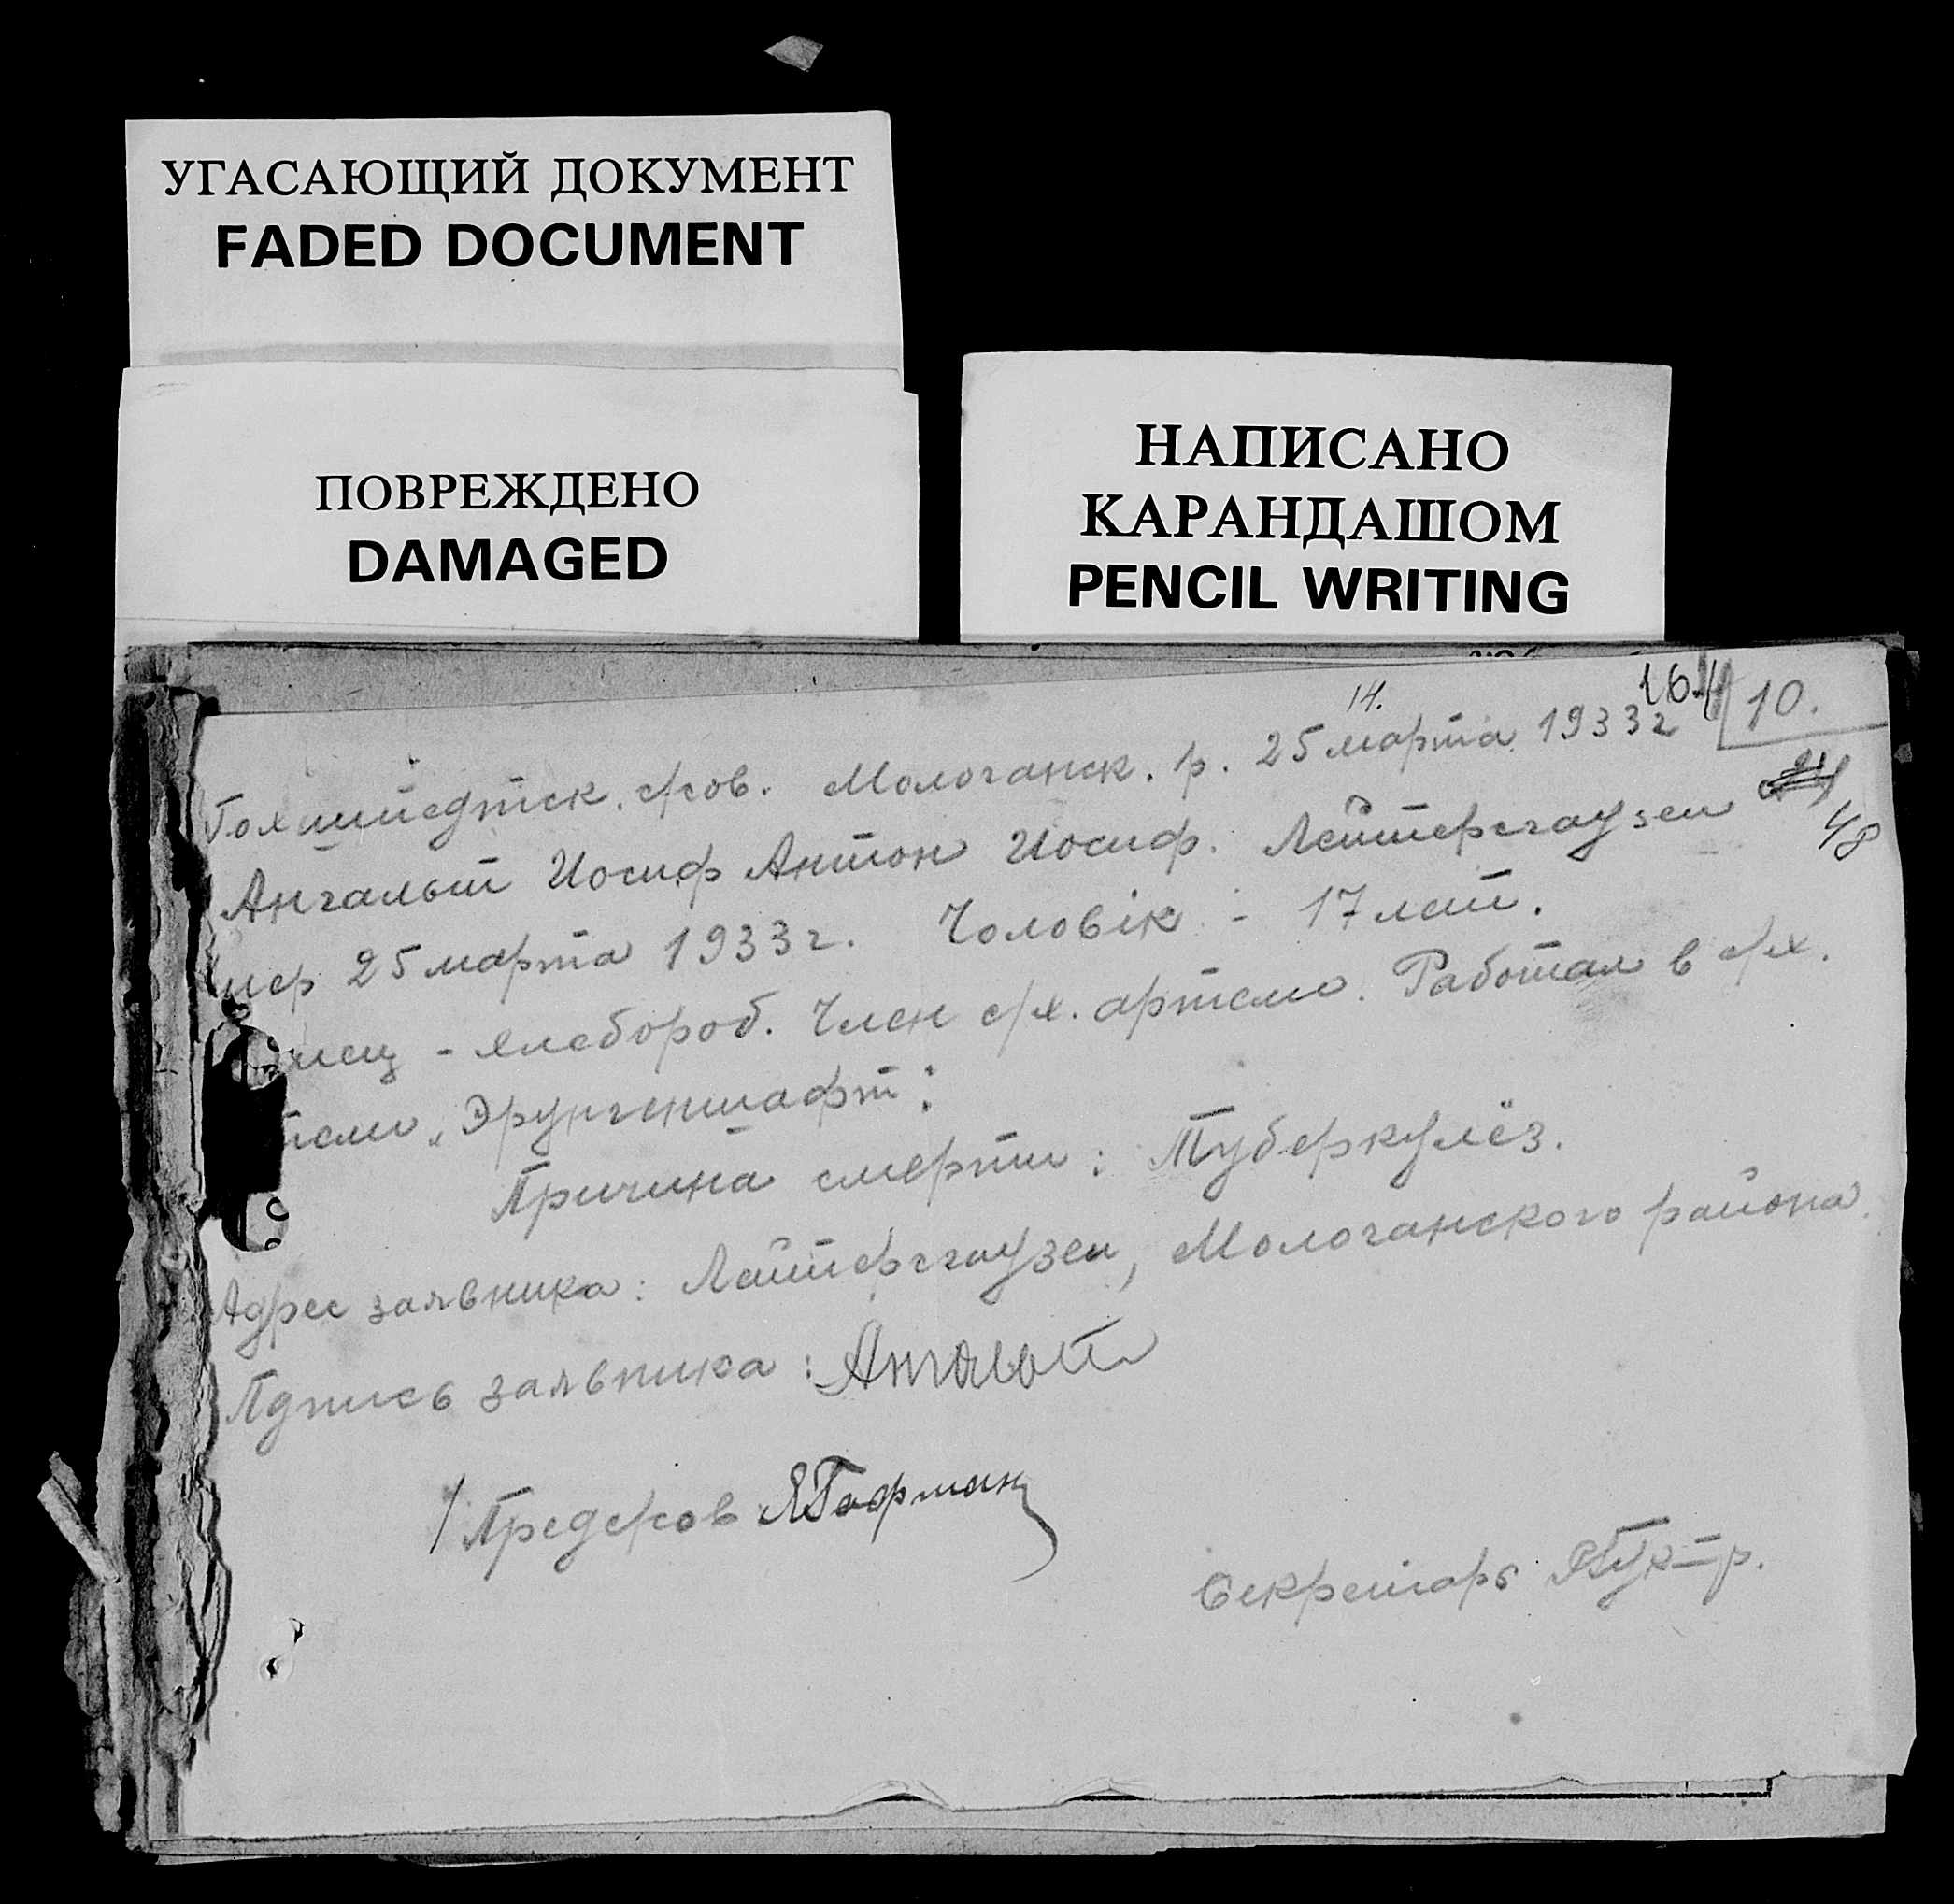 УГАСАЮЩИЙ ДОКУМЕНТ
FADED DOCUMENT
ПОВРЕЖДЕНО
DAMAGED
НАПИСАНО
КАРАНДАШОМ
PENCIL WRITING
14.
164
10.
48
Гохштедтск. с/сов. Молочанск. р. 25 марта 1933 г
Ангальт Иосиф Антон Иосиф. Лейтерсгаузен
мер 25 марта 1933 г. Чоловік - 17 лет.
мец - хлебороб. Член с/х. артели. Работал в с/х.
тели „Эрунгеншафт“.
Причина смерти: Туберкулёз.
Адрес заявника: Лейтерсгаузен, Молочанского района.
Пдпись заявника: Ангальт
/ Пред с/сов ЯГофман
Секретарь